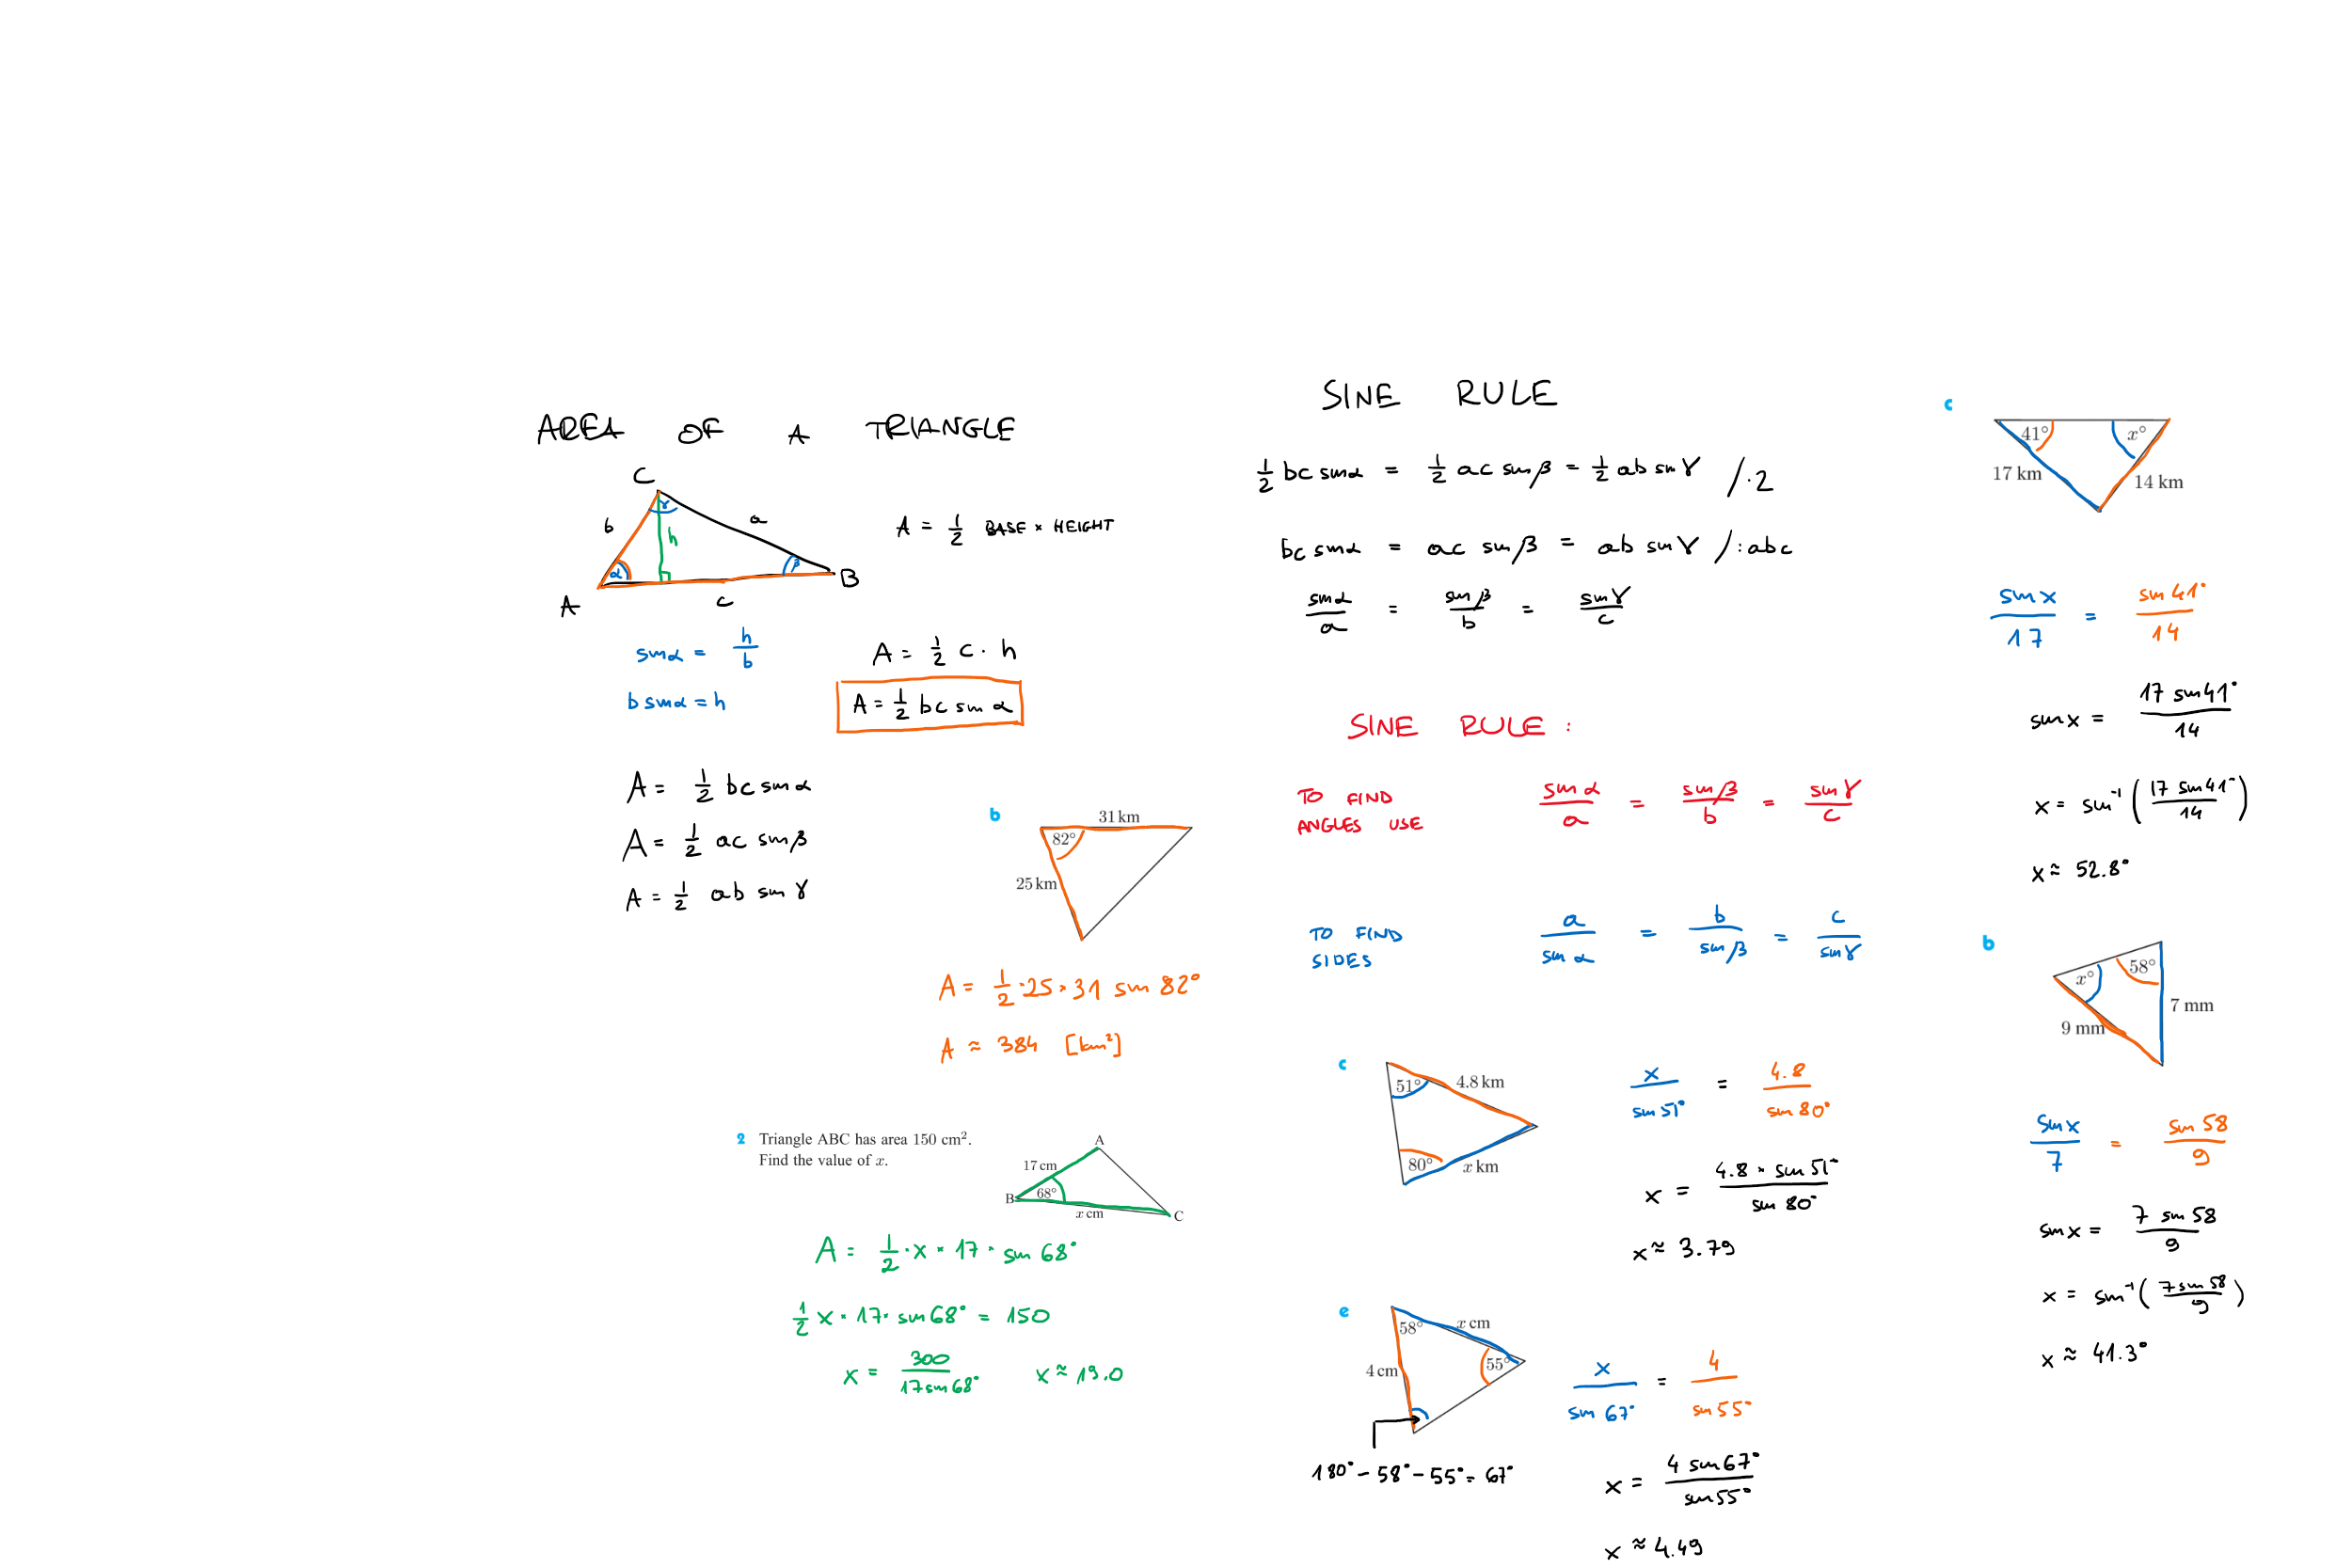 AREA OF A TRIANGLE
C
b
γ
a
h
α
β
B
A
c
A = 1/2 BASE × HEIGHT
sinα = h/b
b sinα = h
A = 1/2 c · h
A = 1/2 bc sin α
A = 1/2 bc sinα
A = 1/2 ac sinβ
A = 1/2 ab sin γ
b
31 km
82°
25 km
A = 1/2 · 25 · 31 sin 82°
A ≈ 384 [km²]
2 Triangle ABC has area 150 cm².
Find the value of x.
A
17 cm
B
68°
x cm
C
A = 1/2 · x · 17 · sin 68°
1/2 x · 17 · sin 68° = 150
x = 300/17 sin 68°
x ≈ 19.0
SINE RULE
1/2 bc sinα = 1/2 ac sinβ = 1/2 ab sin γ / · 2
bc sinα = ac sinβ = ab sin γ / : abc
sinα/a = sinβ/b = sinγ/c
SINE RULE :
TO FIND
ANGLES USE
sin α/a = sin β/b = sin γ/c
TO FIND
SIDES
a/sin α = b/sin β = c/sin γ
c
51°
4.8 km
80°
x km
x/sin 51° = 4.8/sin 80°
x = 4.8 · sin 51°/sin 80°
x ≈ 3.79
e
58°
x cm
4 cm
55°
180° − 58° − 55° = 67°
x/sin 67° = 4/sin 55°
x = 4 sin 67°/sin 55°
x ≈ 4.49
c
41°
x°
17 km
14 km
sin x/17 = sin 41°/14
sin x = 17 sin 41°/14
x = sin⁻¹ (17 sin 41°/14)
x ≈ 52.8°
b
58°
x°
7 mm
9 mm
sin x/7 = sin 58/9
sin x = 7 sin 58/9
x = sin⁻¹ (7 sin 58/9)
x ≈ 41.3°